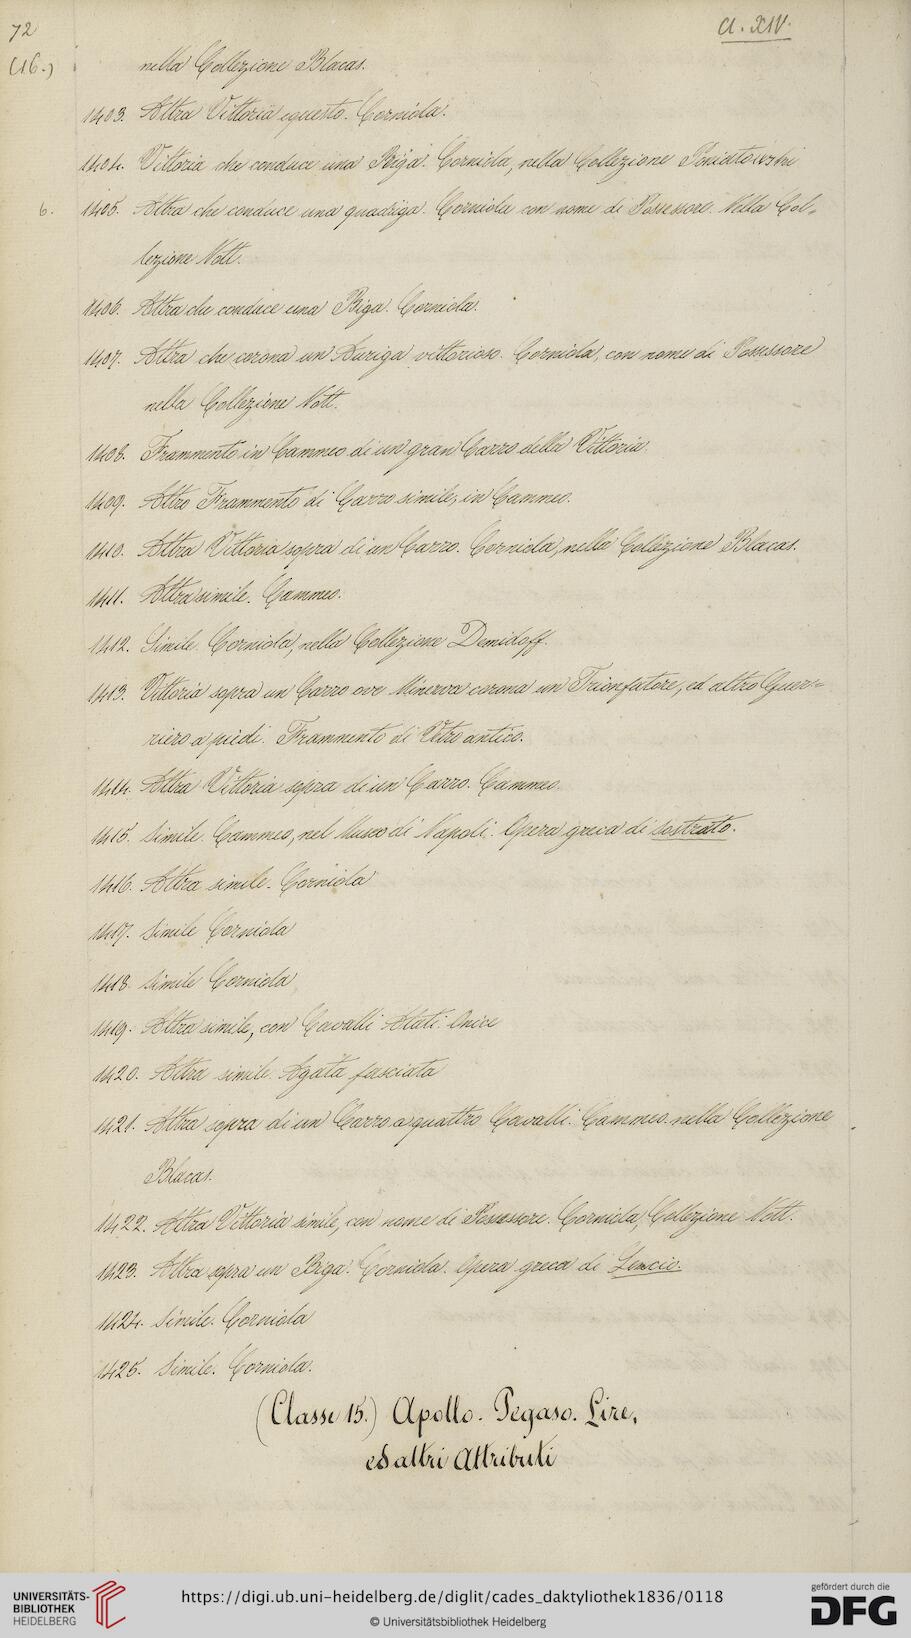 72
Cl. XIV.
(16.)
nella Collezione Blacas.
1403. Altra Vittoria equestre. Corniola.
1404. Vittoria che conduce una Biga. Corniola, nella Collezione Poniatowski
6.
1405. Altra che conduce una quadriga. Corniola con nome di Possessore. Nella Col=
lezione Nott.
1406. Altra che conduce una Biga. Corniola.
1407. Altra che corona un Auriga vittorioso. Corniola, con nome di Possessore
nella Collezione Nott.
1408. Frammento in Cammeo di un gran Carro della Vittoria.
1409. Altro Frammento di Carro simile, in Cammeo.
1410. Altra Vittoria sopra di un Carro. Corniola, nella Collezione Blacas.
1411. Altra simile. Cammeo.
1412. Simile. Corniola, nella Collezione Demidoff.
1413. Vittoria sopra un Carro ove Minerva corona un Trionfatore, ed altro Guer=
riero a piedi. Frammento di Vetro antico.
1414. Altra Vittoria sopra di un Carro. Cammeo.
1415. Simile. Cammeo, nel Museo di Napoli. Opera greca di Sostrato.
1416. Altra simile. Corniola
1417. Simile Corniola
1418. Simile Corniola
1419. Altra simile, con Cavalli Alati. Onice
1420. Altra simile. Agata fasciata
1421. Altra sopra di un Carro a quattro Cavalli. Cammeo. nella Collezione
Blacas.
1422. Altra Vittoria simile, con nome di Possessore. Corniola, Collezione Nott.
1423. Altra sopra un Biga. Corniola. Opera greca di Leucio.
1424. Simile. Corniola
1425. Simile. Corniola.
(Classe 15.) Apollo. Pegaso. Lire,
ed altri Attributi
UNIVERSITÄTS-
BIBLIOTHEK
HEIDELBERG
https://digi.ub.uni-heidelberg.de/diglit/cades_daktyliothek1836/0118
© Universitätsbibliothek Heidelberg
gefördert durch die
DFG